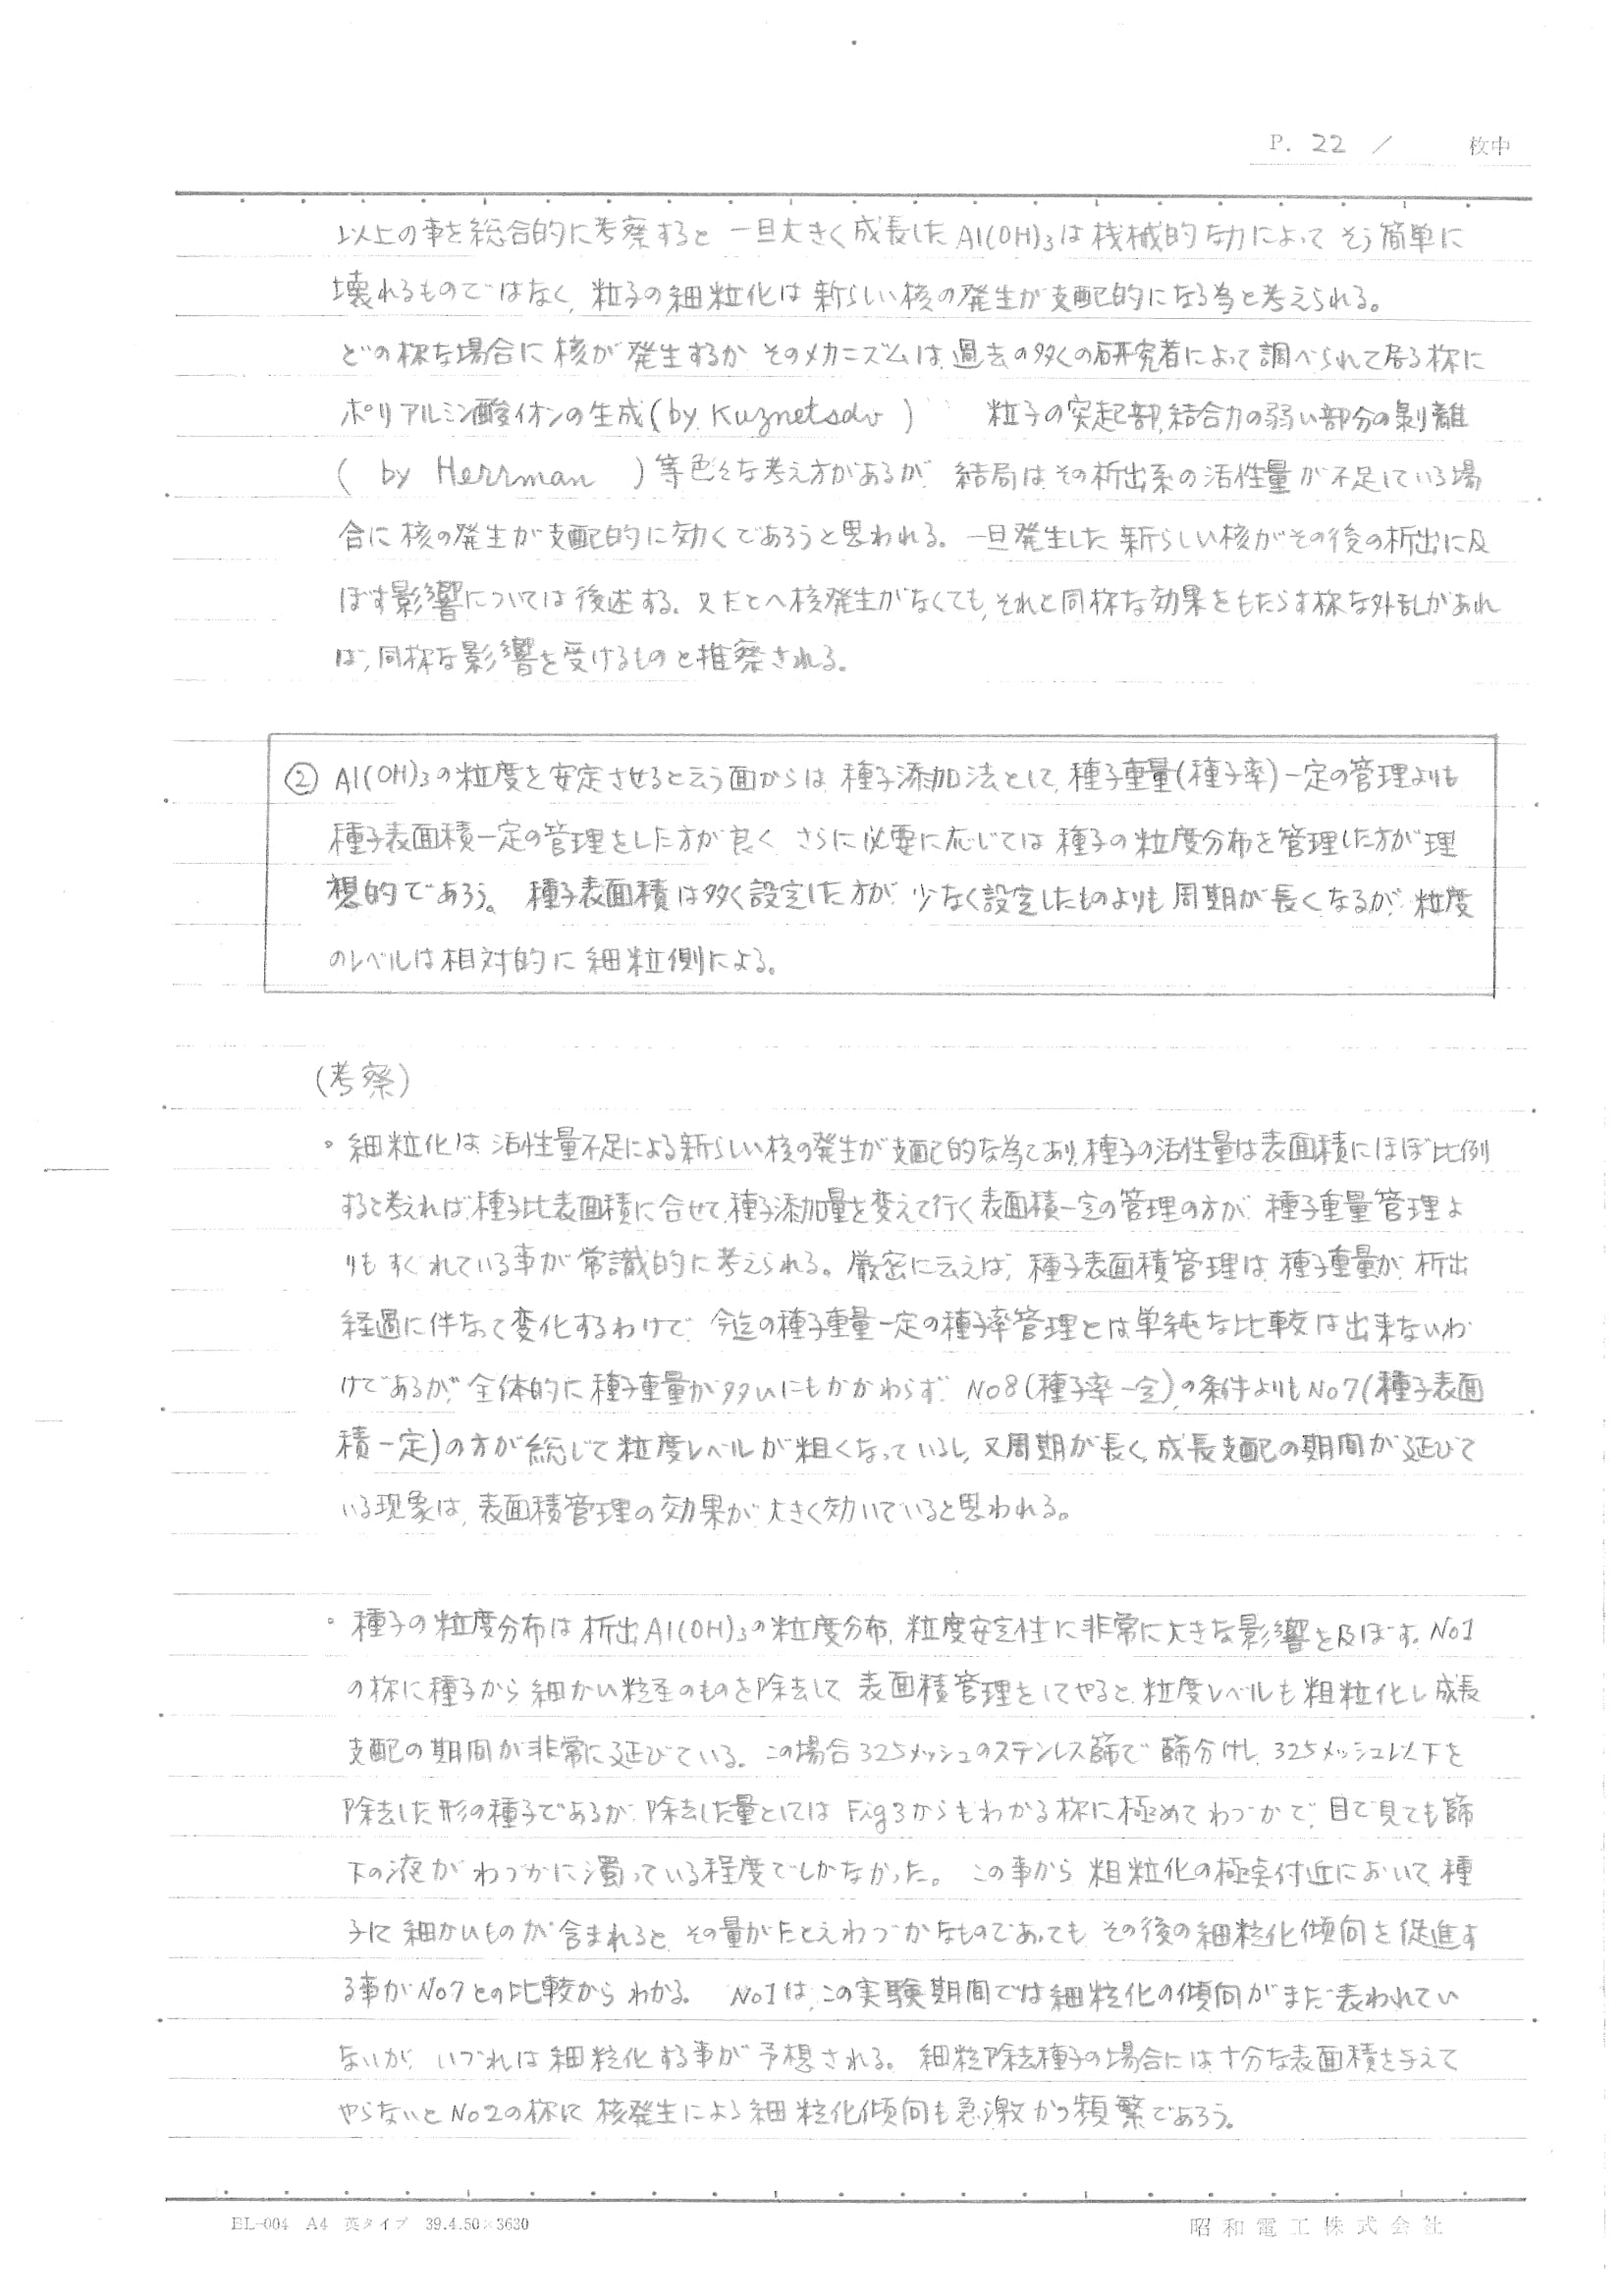 P. 22 / 枚中
以上の事を総合的に考察すると 一旦大きく成長した Al(OH)₃は機械的な力によって そう簡単に
壊れるものではなく、粒子の細粒化は 新らしい核の発生が支配的になる為と考えられる。
どの様な場合に 核が発生するか そのメカニズムは、過去の多くの研究者によって調べられて居る様に
ポリアルミン酸イオンの生成(by Kuznetsov ) 粒子の突起部、結合力の弱い部分の剥離
( by Herrman ) 等色々な考え方があるが、結局は、その析出系の活性量が不足している場
合に 核の発生が支配的に効くであろうと思われる。一旦発生した 新らしい核がその後の析出に及
ぼす影響については後述する。又たとへ核発生がなくても、それと同様な効果をもたらす様な外乱があれ
ば、同様な影響を受けるものと推察される。
② Al(OH)₃の粒度を安定させると云う面からは 種子添加法として、種子重量(種子率)一定の管理よりも
種子表面積一定の管理をした方が良く さらに必要に応じては 種子の粒度分布を管理した方が理
想的であろう。 種子表面積は多く設定した方が 少なく設定したものよりも 周期が長くなるが、粒度
のレベルは相対的に 細粒側による。
(考察)
。細粒化は 活性量不足による新らしい核の発生が支配的な為であり、種子の活性量は表面積にほぼ比例
すると考えれば、種子比表面積に合せて、種子添加量を変えて行く表面積一定の管理の方が、種子重量管理よ
りも すぐれている事が 常識的に考えられる。厳密に云えば、種子表面積管理は、種子重量が、析出
経過に伴なって変化するわけで、今迄の種子重量一定の種子率管理とは単純な比較は出来ないわ
けであるが、全体的に種子重量が多いにもかかわらず、No8(種子率一定)の条件よりもNo7(種子表面
積一定)の方が総じて粒度レベルが粗くなっているし、又周期が長く、成長支配の期間が延びて
いる現象は、表面積管理の効果が 大きく効いていると思われる。
。種子の粒度分布は析出Al(OH)₃の粒度分布、粒度安定性に非常に大きな影響を及ぼす。No1
の様に種子から細かい粒径のものを除去して 表面積管理をしてやると、粒度レベルも粗粒化し成長
支配の期間が非常に延びている。この場合 325メッシュのステンレス篩で 篩分けし、325メッシュ以下を
除去した形の種子であるが、除去した量としては Fig3からもわかる様に極めてわづかで、目で見ても篩
下の液がわづかに濁っている程度でしかなかった。この事から 粗粒化の極点付近において、種
子に細かいものが含まれると、その量がたとえわづかなものであっても その後の細粒化傾向を促進す
る事がNo7との比較からわかる。 No1は、この実験期間では細粒化の傾向がまだ表われてい
ないが、いづれは細粒化する事が予想される。細粒除去種子の場合には十分な表面積を与えて
やらないとNo2の様に核発生による細粒化傾向も急激かつ頻繁であろう。
BL-004 A4 英タイプ 39.4.50×3630
昭和電工株式会社